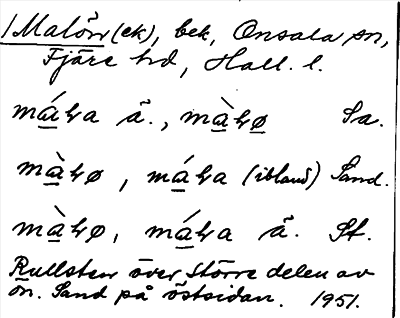 /Malön (ek), bek, Onsala sn,
Fjäre hd, Hall. l.
má̱ⱨa ä., mà̱ⱨø̱ Sa.
mà̱ⱨø, má̱ⱨa (ibland) Sand.
mà̱ⱨø, má̱ⱨa ä. St.
Rullsten över större delen av
ön. Sand på östsidan. 1951.